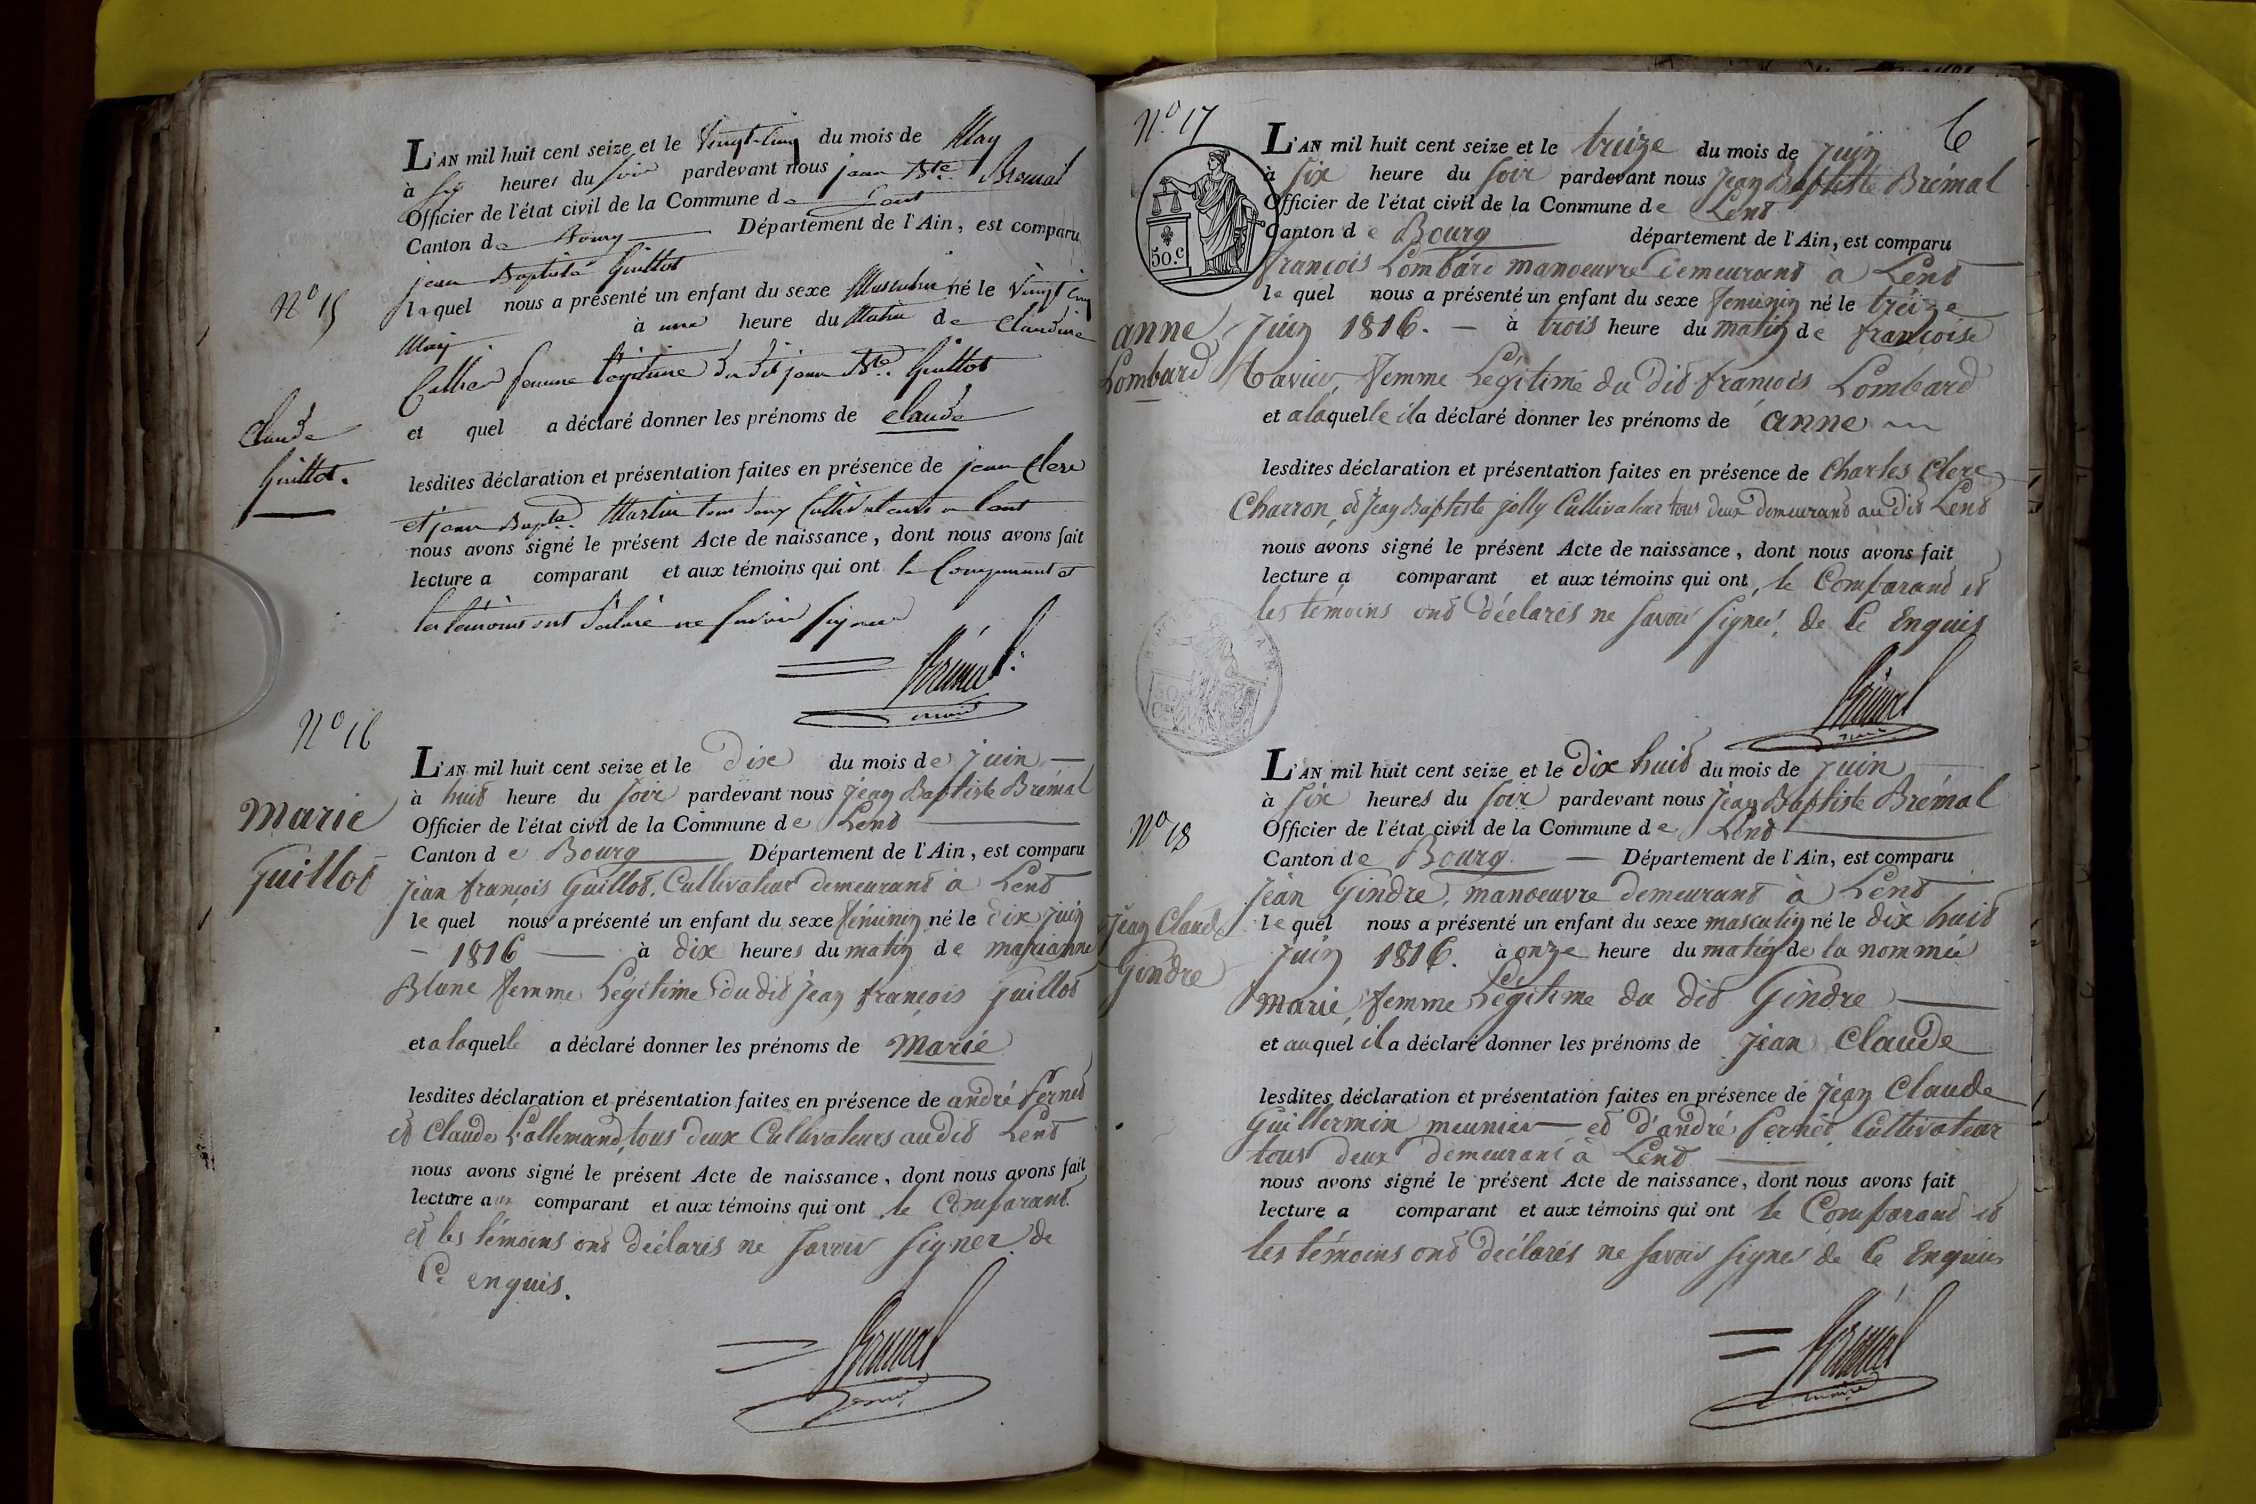 L'AN mil huit cent seize et le Vingt-cinq du mois de May
à six heures du soir pardevant nous jean Bte Bremal
Officier de l'état civil de la Commune de Lent
Canton de Bourg Département de l'Ain, est comparu
jean Baptiste Guillot
N° 15
lequel nous a présenté un enfant du sexe Masculin né le Vingt cinq
May à une heure du Matin de Claudine
femme légitime du dit jean Bte. Guillot
Claude
Guillot.
et quel a déclaré donner les prénoms de Claude
lesdites déclaration et présentation faites en présence de jean Clerc
et jean Bapte. Martin tous deux Cultivateurs a Lent
nous avons signé le présent Acte de naissance, dont nous avons fait
lecture a comparant et aux témoins qui ont le Comparant et
les témoins ont déclaré ne savoir signer
Brémal
N° 16
L'AN mil huit cent seize et le Dix du mois de juin
à huit heure du soir pardevant nous jean Baptiste Brémal
Officier de l'état civil de la Commune de Lent
Marie
Guillot
Canton de Bourg Département de l'Ain, est comparu
Jean françois Guillot, Cultivateur demeurant à Lent
le quel nous a présenté un enfant du sexe féminin né le dix juin
1816 à dix heures du matin de marianne
Blanc femme Légitime du dit Jean françois Guillot
et a laquelle a déclaré donner les prénoms de Marie
lesdites déclaration et présentation faites en présence de andré Pernet
et Claude Lallemand, tous deux Cultivateurs au dit Lent
nous avons signé le présent Acte de naissance, dont nous avons fait
lecture au comparant et aux témoins qui ont le Comparant
et les témoins ont déclarés ne savoir signer de
Ce enquis.
Brémal
N° 17
6
L'AN mil huit cent seize et le treize du mois de juin
à six heure du soir pardevant nous Jean Baptiste Brémal
Officier de l'état civil de la Commune de Lent
Canton de Bourg département de l'Ain, est comparu
50.c
françois Lombard manoeuvre demeurant à Lent
le quel nous a présenté un enfant du sexe feminin né le treize
anne
Lombard
Juin 1816. à trois heure du matin de françoise
Tavier, femme Légitime du dit françois Lombard
et a laquelle il a déclaré donner les prénoms de anne
lesdites déclaration et présentation faites en présence de Charles Clerc
Charron, et Jean Baptiste jolly Cultivateur tous deux demeurant au dit Lent
nous avons signé le présent Acte de naissance, dont nous avons fait
lecture a comparant et aux témoins qui ont, le Comparand et
les témoins ont déclarés ne savoir signer, de Ce Enquis
Brémal
maire
L'AN mil huit cent seize et le dix huit du mois de juin
à six heures du soir pardevant nous Jean Baptiste Brémal
N° 18
Officier de l'état civil de la Commune de Lent
Canton de Bourg Département de l'Ain, est comparu
Jean Gindre, manoeuvre demeurant à Lent
Jean Claude
Gindre
le quel nous a présenté un enfant du sexe masculin né le dix huit
Juin 1816. à onze heure du matin de la nommée
Marie, femme Légitime du dit Gindre
et auquel il a déclaré donner les prénoms de Jean Claude
lesdites déclaration et présentation faites en présence de Jean Claude
Guillermin meunier et d'andré Pernet Cultivateur
tous deux demeurant à Lent
nous avons signé le présent Acte de naissance, dont nous avons fait
lecture a comparant et aux témoins qui ont le Comparand et
les témoins ont déclarés ne savoir signer de Ce Enquis
Brémal
maire